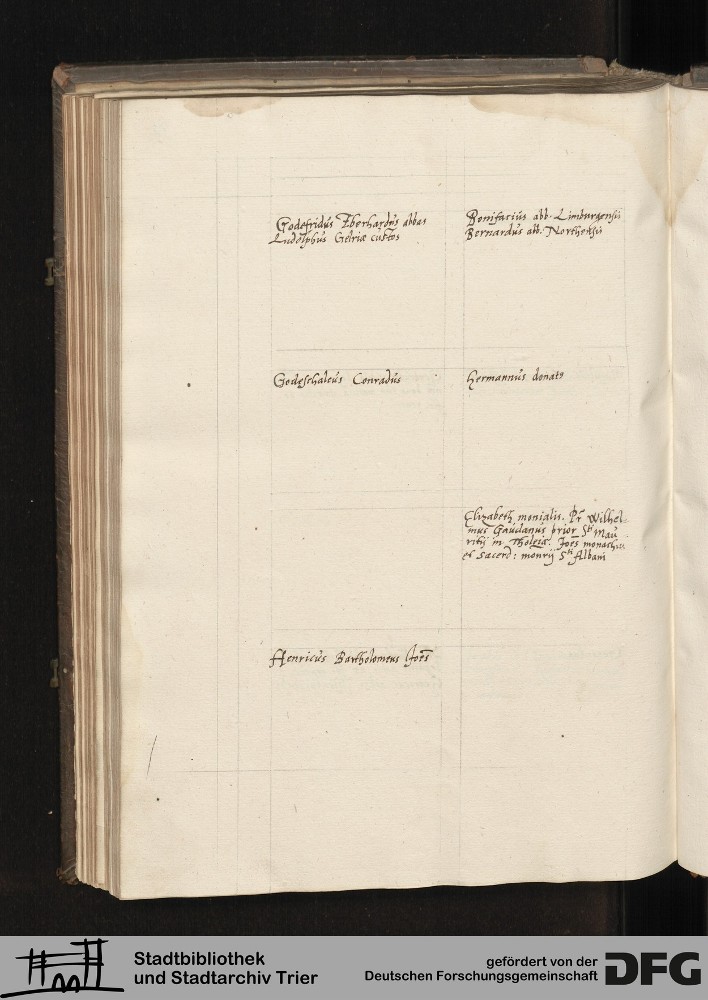 Godefridus Eberhardus abbas
Ludolphus Gelriæ custos
Bonifacius abb. Limburgensis
Bernardus abb. Northensis
Godeschalcus Conradus
Hermannus donatꝰ
Elizabeth monialis. Pr Wilhel-
mus Gaudanus prior Sti Mau
ritij in Tholeia. Joēs monachus
et sacerd: monrij Sti Albani
Henricus Bartholomeus Joēs
Stadtbibliothek
und Stadtarchiv Trier
gefördert von der
Deutschen Forschungsgemeinschaft
DFG